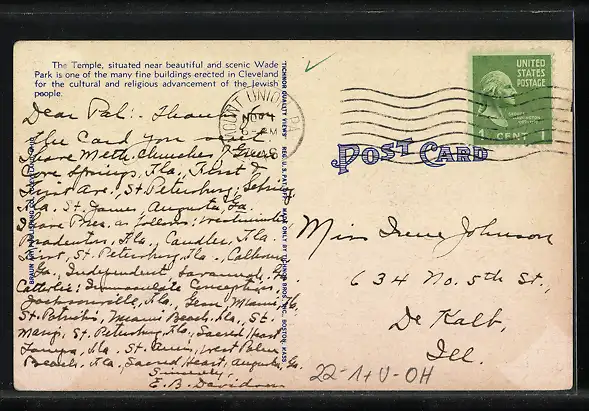 The Temple, situated near beautiful and scenic Wade
Park is one of the many fine buildings erected in Cleveland
for the cultural and religious advancement of the Jewish
people.
Dear Pal:- Thanks
The Card you
I have Meth. Churches
Cove Springs, Fla., First &
Ave., St. Petersburg, Sebring,
Fla. St. James, Augusta, Ga.
I have Pres. as follows: Westminster
Bradenton, Fla., Candler, Fla.
First, St. Petersburg, Fla., Calhoun,
Ga., Independent Savannah, Ga.
Catholic: Immaculate Conception,
Jacksonville, Fla., Gesu, Miami, Fla.
St. Patricks, Miami Beach, Fla., St.
Marys, St. Petersburg, Fla., Sacred Heart
Tampa, Fla. St. Anns, West Palm
Beach, Fla., Sacred Heart, Augusta, Ga.
Sincerely,
E. B. Davidson
"TICHNOR QUALITY VIEWS" REG. U.S. PAT. OFF. MADE ONLY BY TICHNOR BROS., INC. BOSTON, MASS.
MOUNT UNION PA
NOV 4
6 - PM
UNITED
STATES
POSTAGE
1 CENT 1
POST CARD
Miss Irene Johnson
634 No. 5th St.,
De Kalb,
Ill.
22-1+V-OH